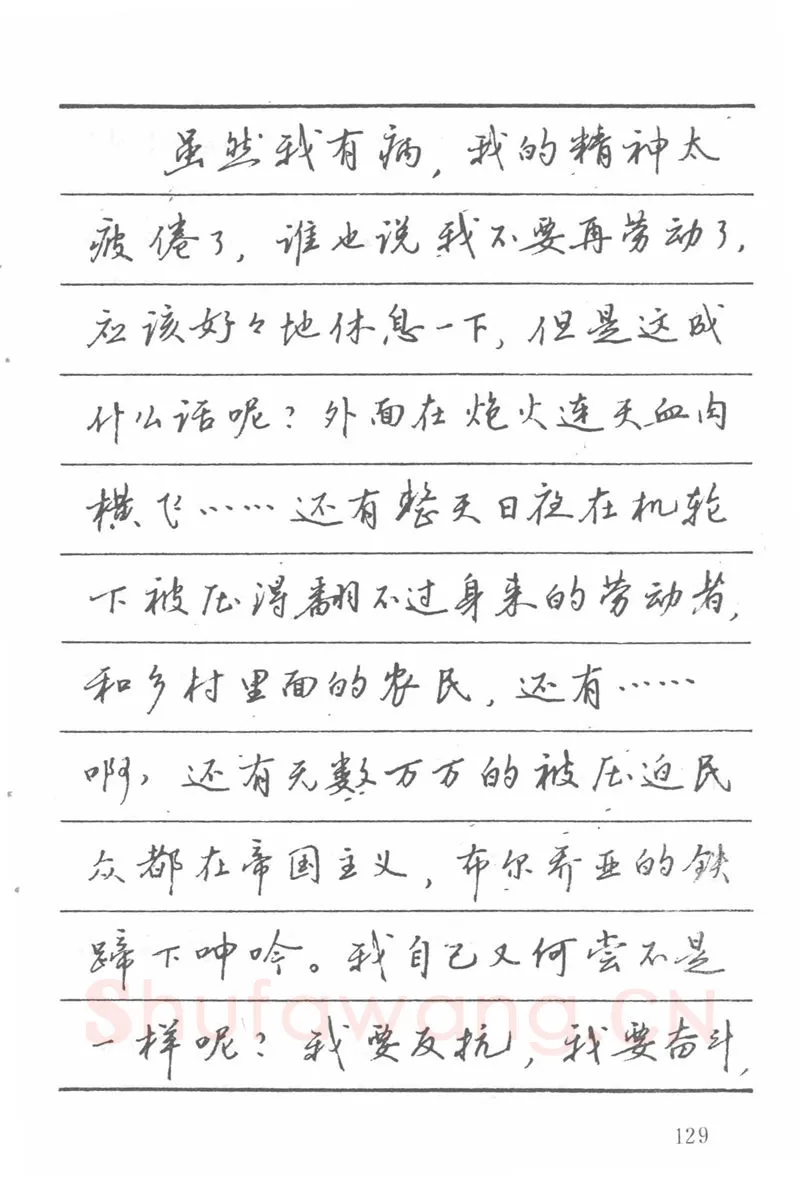 虽然我有病，我的精神太
疲倦了，谁也说我不要再劳动了，
应该好々地休息一下，但是这成
什么话呢？外面在炮火连天血肉
横飞……还有整天日夜在机轮
下被压得翻不过身来的劳动者，
和乡村里面的农民，还有……
啊，还有无数万万的被压迫民
众都在帝国主义，布尔乔亚的铁
蹄下呻吟。我自己又何尝不是
一样呢？我要反抗，我要奋斗，
Shufawang.CN
129